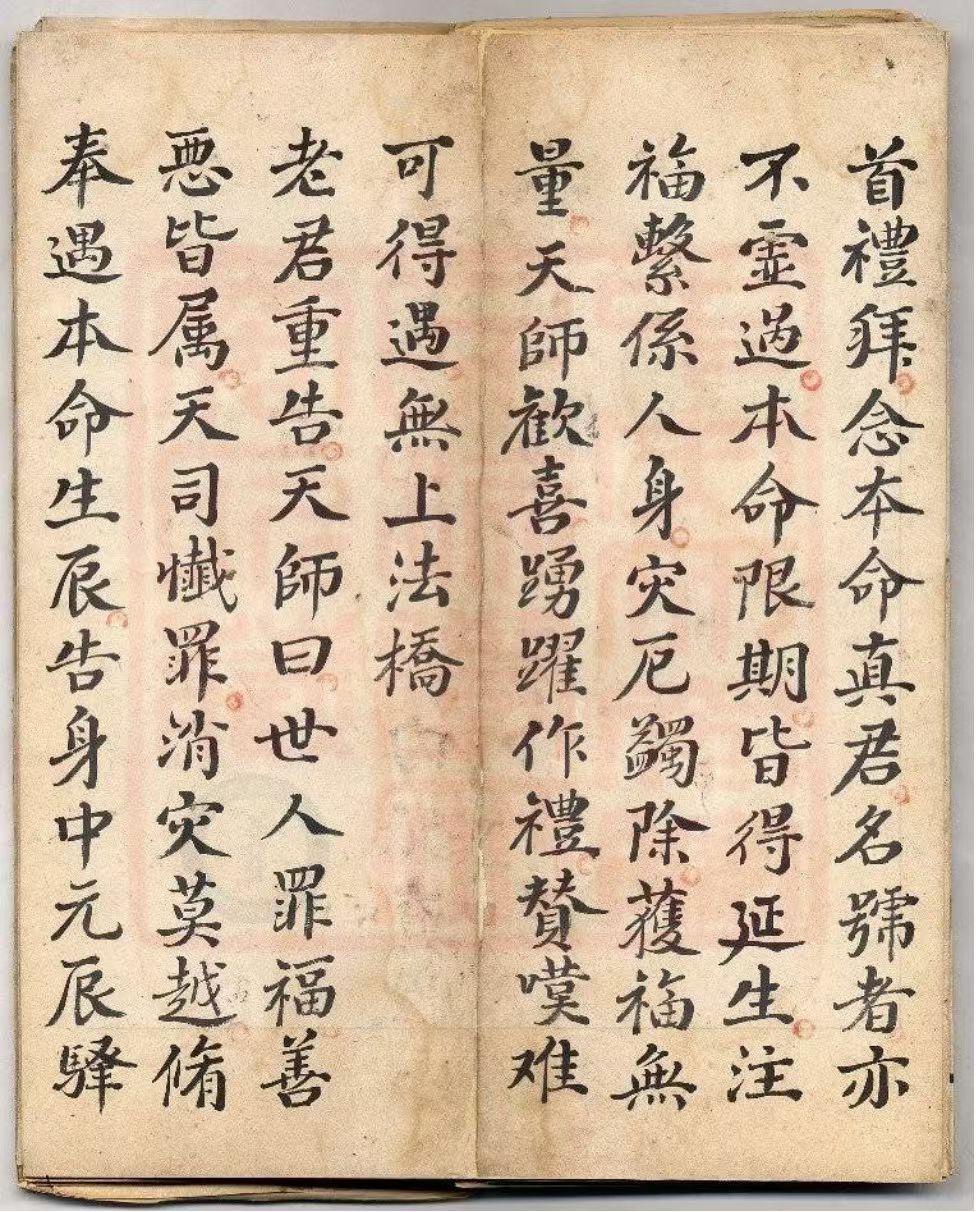 首禮拜念本命真君名號者亦
不虛過本命限期皆得延生注
福繫係人身灾厄蠲除獲福無
量天師歡喜踴躍作禮賛嘆难
可得遇無上法橋
老君重告天師曰世人罪福善
悪皆属天司懺罪消灾莫越脩
奉遇本命生辰告身中元辰驛